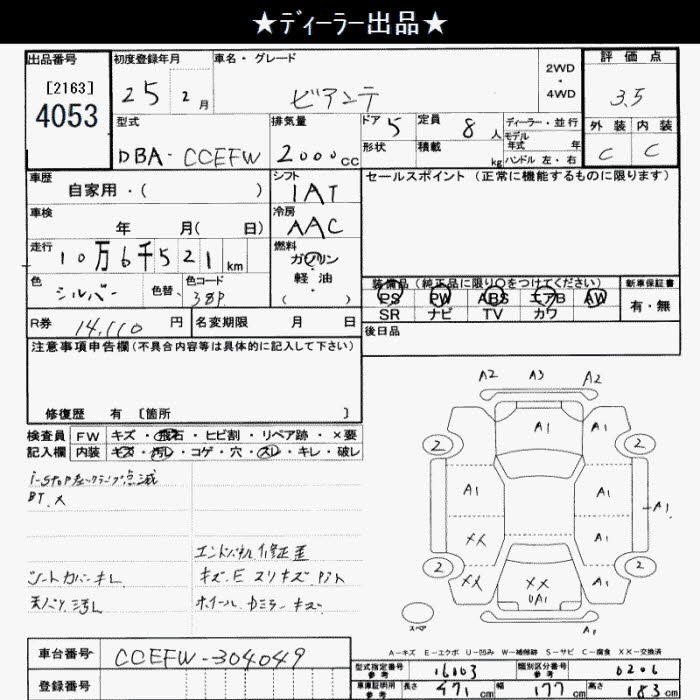 ★ディーラー出品★
出品番号 初度登録年月 車名・グレード 評価点
[2163]
4053
25 2月 ビアンテ 2WD・4WD 3.5
型式 排気量 ドア 5 定員 8人 ディーラー・並行 外装 内装
モデル年式 年
DBA-CCEFW 2000cc 形状 積載 kg ハンドル 左・右 C C
車歴 シフト セールスポイント (正常に機能するものに限ります)
自家用・( ) IAT
車検 冷房
年 月( 日) AAC
走行 燃料
10万6千521km ガソリン・軽油・( )
色 色替 色コード 装備品 (純正品に限り○をつけてください) 新車保証書
シルバー 38P PS PW ABS エアB AW 有・無
SR ナビ TV カワ
R券 14,110円 名変期限 月 日 後日品
注意事項申告欄 (不具合内容等は具体的に記入して下さい)
修復歴 有 [箇所 ]
検査員記入欄 FW キズ・飛石・ヒビ割・リペア跡・×要
内装 キズ・汚レ・コゲ・穴・スレ・キレ・破レ
i-stopチェックランプ点滅
BT.×
エンドパネル修正歪
シートカバーキレ キズ.E スリキズ
天バリ汚レ ホイール.Dミラーキズ
A2 A3 A2
A1 A1
2 2
A1 A1 A1
XX A1
2 2
XX XX A1
UA1
スペア A1
A-キズ E-エクボ U-凹み W-補修跡 S-サビ C-腐食 XX-交換済
車台番号 CCEFW-304049
登録番号
型式指定番号 参考 16103 類別区分番号 参考 0206
車庫証明用 参考 長さ 471cm 幅 177cm 高さ 183cm